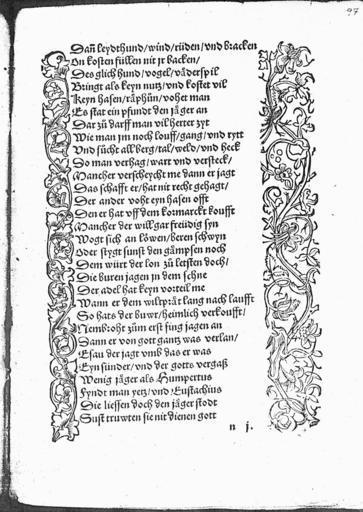 97
Dañ leydthund/wind/rüden/vnd bracken
On kosten füllen nit jr backen/
Des glich hund/vogel/väderspil
Bringt als keyn nutz/vnd kostet vil
Keyn hasen/räphün/vohet man
Es stat ein pfundt den jäger an
Dar zü darff man vil herter zyt
Wie man jm noch louff/gang/vnd rytt
Vnd sücht all berg/tal/weld/vnd heck
Do man verhag/wart vnd versteck/
Mancher verscheycht me dann er jagt
Das schafft er/hat nit recht gehagt/
Der ander voht eyn hasen offt
Den er hat vff dem kornmarckt koufft
Mancher der will gar freüdig syn
Wogt sich an löwen/beren schwyn
Oder stygt sunst den gämpsen noch
Dem würt der lon zü letsten doch/
Die buren jagen jn dem schne
Der adel hat keyn vorteil me
Wann er dem wiltprät lang nach laufft
So hats der buwr/heimlich verkoufft/
Nembroht züm erst fing jagen an
Dann er von gott gantz was verlan/
Esau der jagt vmb das er was
Eyn sünder/vnd der gotts vergaß
Wenig jäger als Humpertus
Fyndt man yetz/vnd Eustachius
Die liessen doch den jäger stodt
Sust truwten sie nit dienen gott
n j.